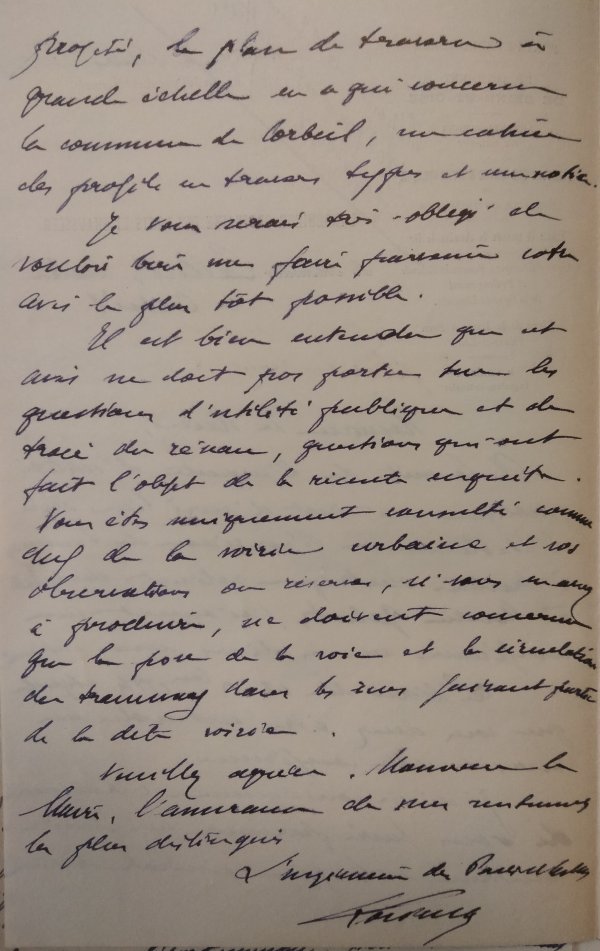 projeté, le plan de traverse à
grande échelle en ce qui concerne
la commune de Corbeil, un cahier
des profils en travers types et une notice.
Je vous serais très obligé de
vouloir bien me faire parvenir votre
avis le plus tôt possible.
Il est bien entendu que cet
avis ne doit pas porter sur les
questions d'utilité publique et de
tracé du réseau, questions qui ont
fait l'objet de la récente enquête.
Vous êtes uniquement consulté comme
chef de la voirie urbaine et vos
observations ou réserves, si vous en avez
à produire, ne doivent concerner
que la pose de la voie et la circulation
des tramways dans les rues faisant partie
de la dite voirie.
Veuillez agréer, Monsieur le
Maire, l'assurance de mes sentiments
les plus distingués
L'ingénieur des